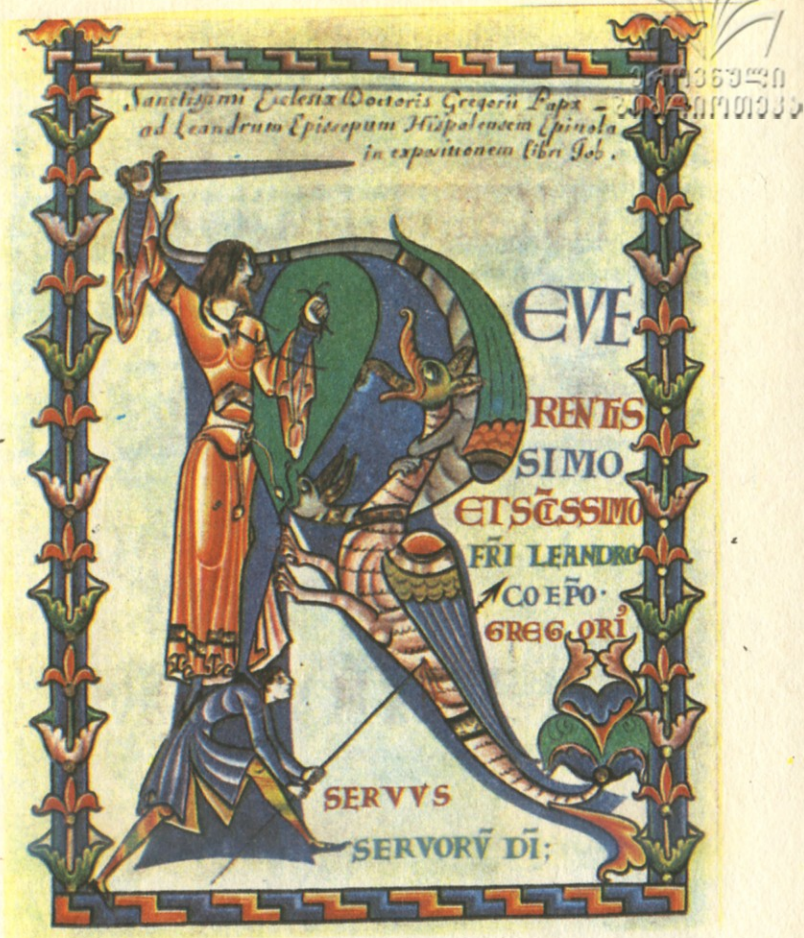 ეროვნული
ბიბლიოთეკა
Sanctissimi Ecclesiæ Doctoris Gregorii Papæ –
ad Leandrum Episcopum Hispalensem Epistola
in expositionem libri Job.
R
EVE
RENTIS
SIMO
ET SC̃SSIMO
FR̃I LEANDRO
CO EP̃O·
GREGORI᾿
SERVVS
SERVORṼ DĨ;